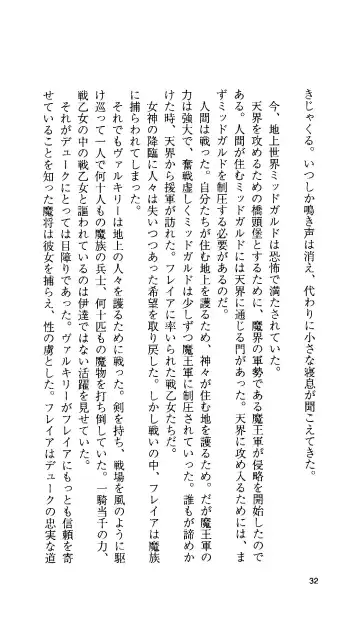 きじゃくる。いつしか鳴き声は消え、代わりに小さな寝息が聞こえてきた。
今、地上世界ミッドガルドは恐怖で満たされていた。
天界を攻めるための橋頭堡とするために、魔界の軍勢である魔王軍が侵略を開始したので
ある。人間が住むミッドガルドには天界に通じる門があった。天界に攻め入るためには、ま
ずミッドガルドを制圧する必要があるのだ。
人間は戦った。自分たちが住む地上を護るため、神々が住む地を護るため。だが魔王軍の
力は強大で、奮戦虚しくミッドガルドは少しずつ魔王軍に制圧されていった。誰もが諦めか
けた時、天界から援軍が訪れた。フレイアに率いられた戦乙女たちだ。
女神の降臨に人々は失いつつあった希望を取り戻した。しかし戦いの中、フレイアは魔族
に捕らわれてしまった。
それでもヴァルキリーは地上の人々を護るために戦った。剣を持ち、戦場を風のように駆
け巡って一人で何十人もの魔族の兵士、何十匹もの魔物を打ち倒していた。一騎当千の力、
戦乙女の中の戦乙女と謳われているのは伊達ではない活躍を見せていた。
それがデュークにとっては目障りであった。ヴァルキリーがフレイアにもっとも信頼を寄
せていることを知った魔将は彼女を捕らえ、性の虜とした。フレイアはデュークの忠実な道
32